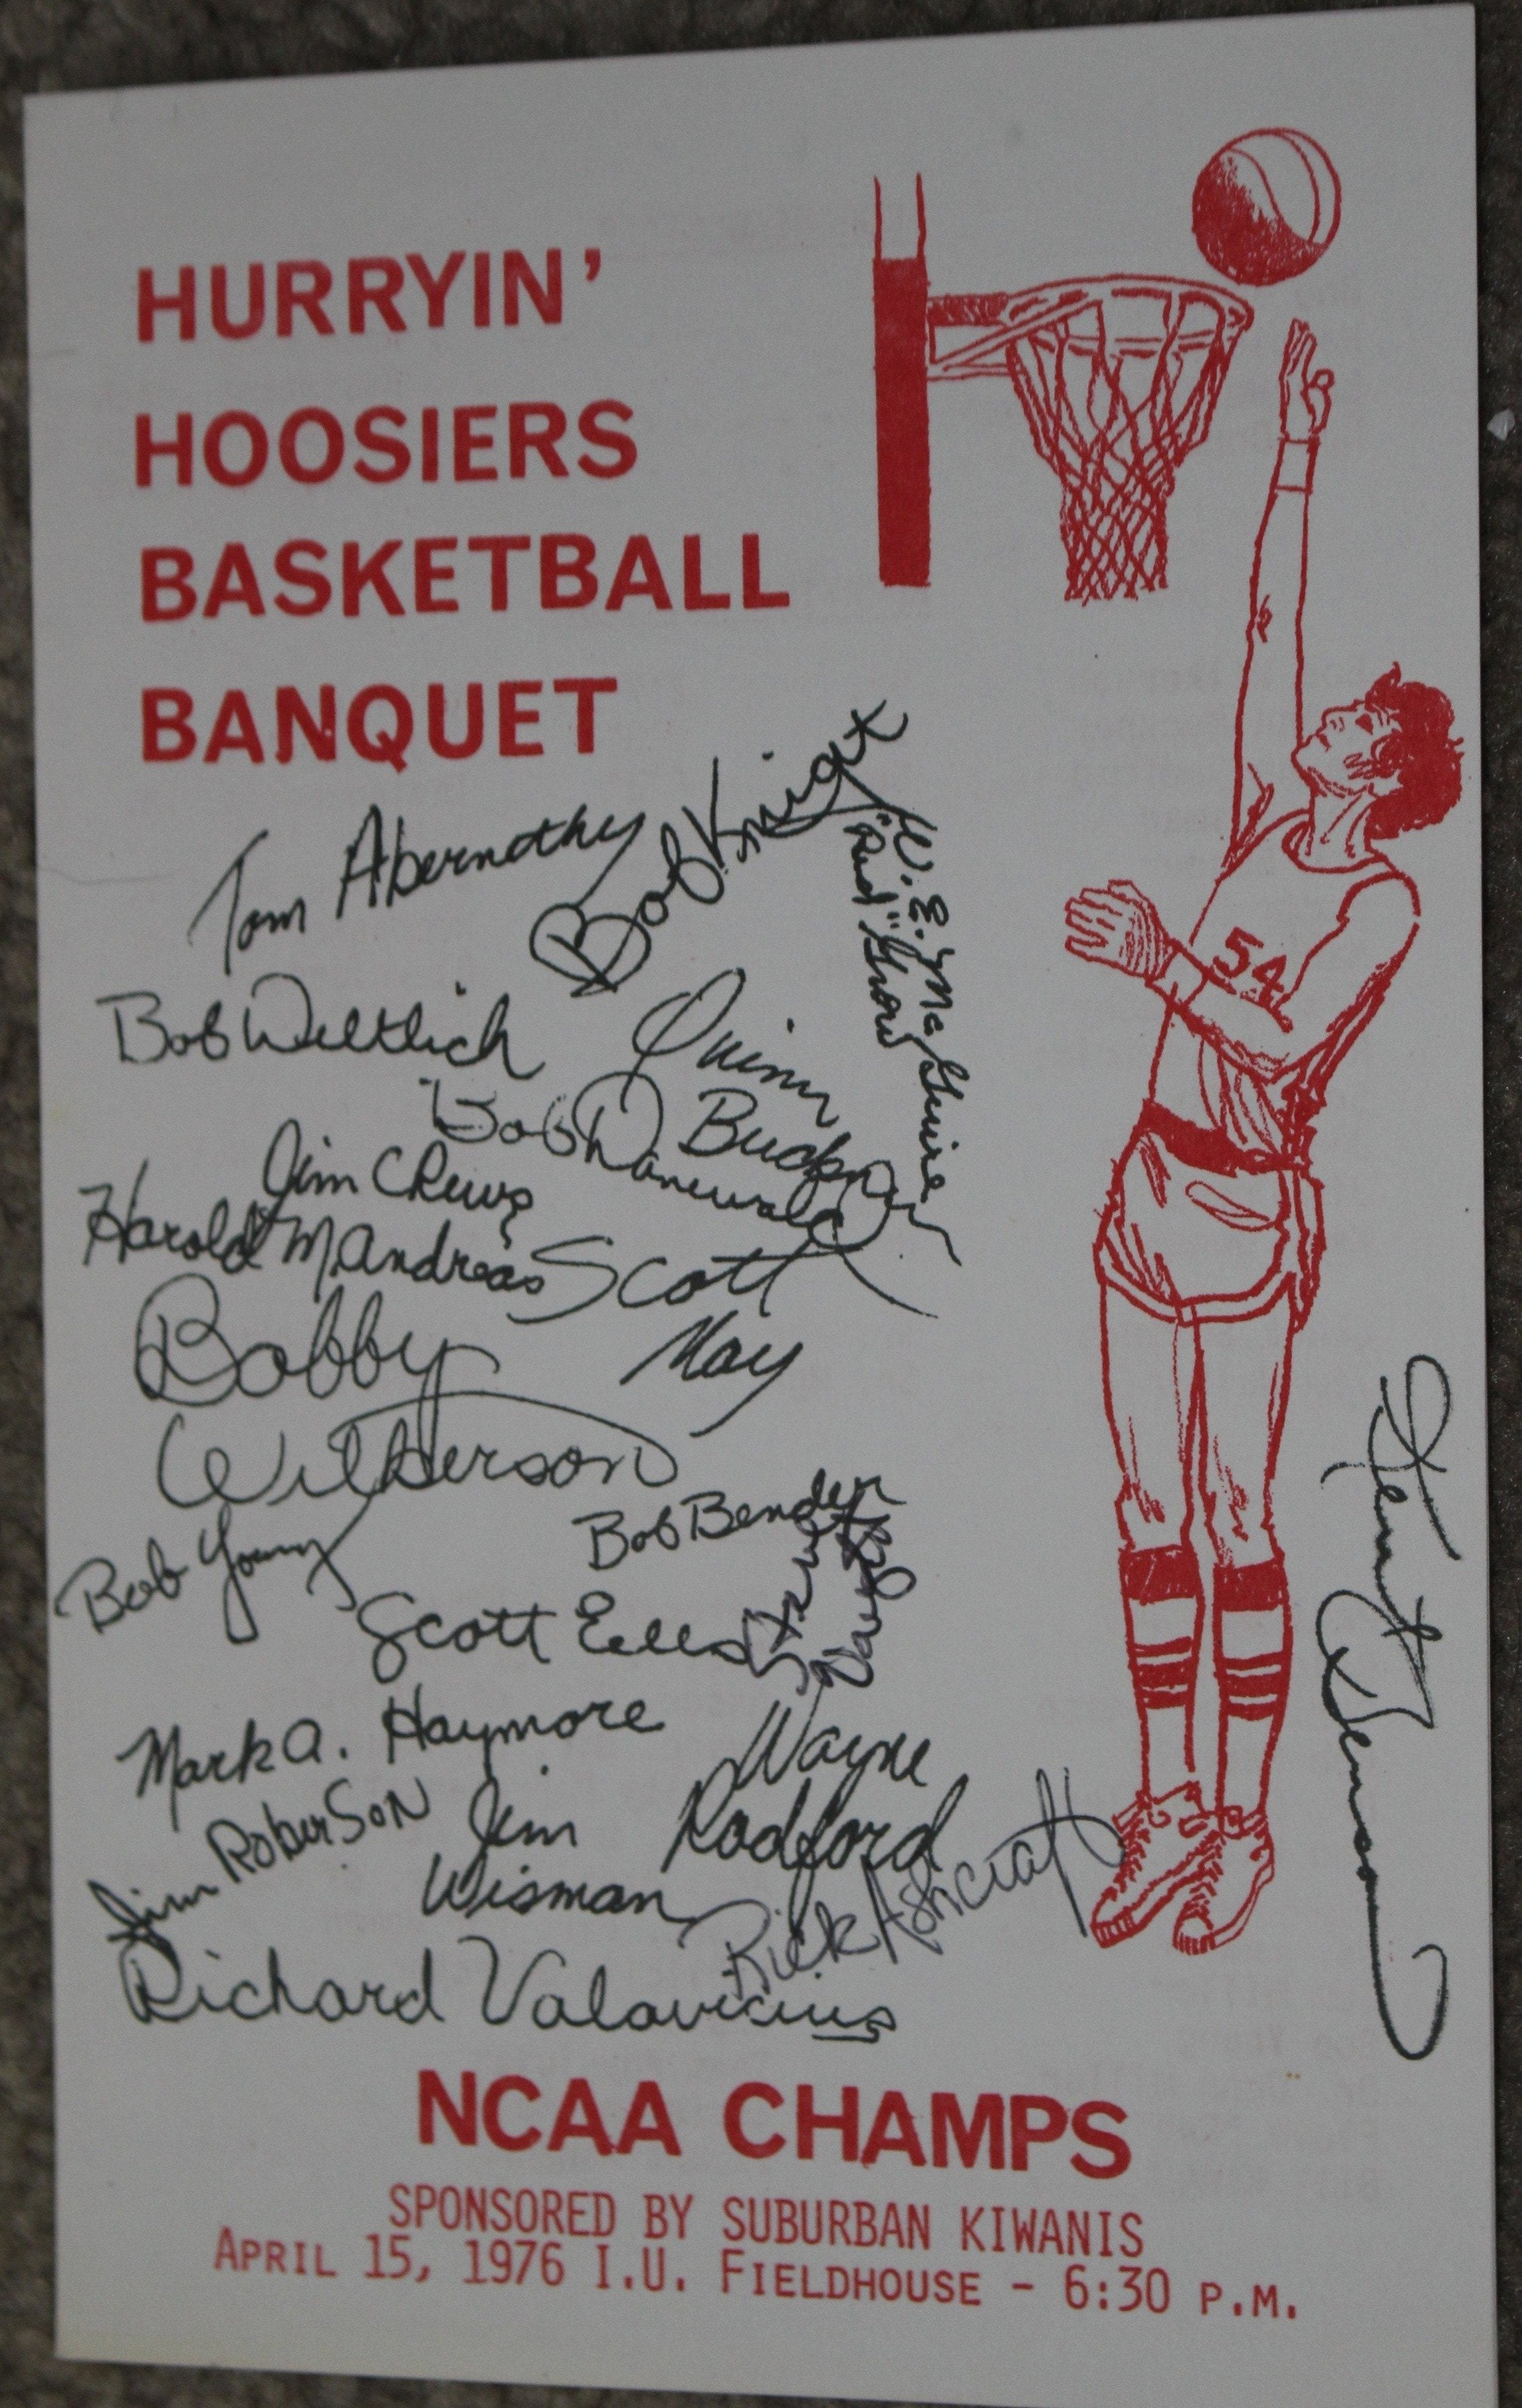 HURRYIN'
HOOSIERS
BASKETBALL
BANQUET
Tom Abernathy
Bob Knight
W. E. McGuire
"Red" Grow
Bob Weltlich
Quinn
Buckner
Bob Donewald
Jim Crews
Harold M Andreas
Scott
May
Bobby
Wilkerson
54
Bob Young
Bob Bender
Scott Eells
Kent Benson
Mark A. Haymore
Wayne
Radford
Jim RoberSoN
Jim
Wisman
Rick Ashcraft
Richard Valavicius
NCAA CHAMPS
SPONSORED BY SUBURBAN KIWANIS
APRIL 15, 1976 I.U. FIELDHOUSE - 6:30 P.M.